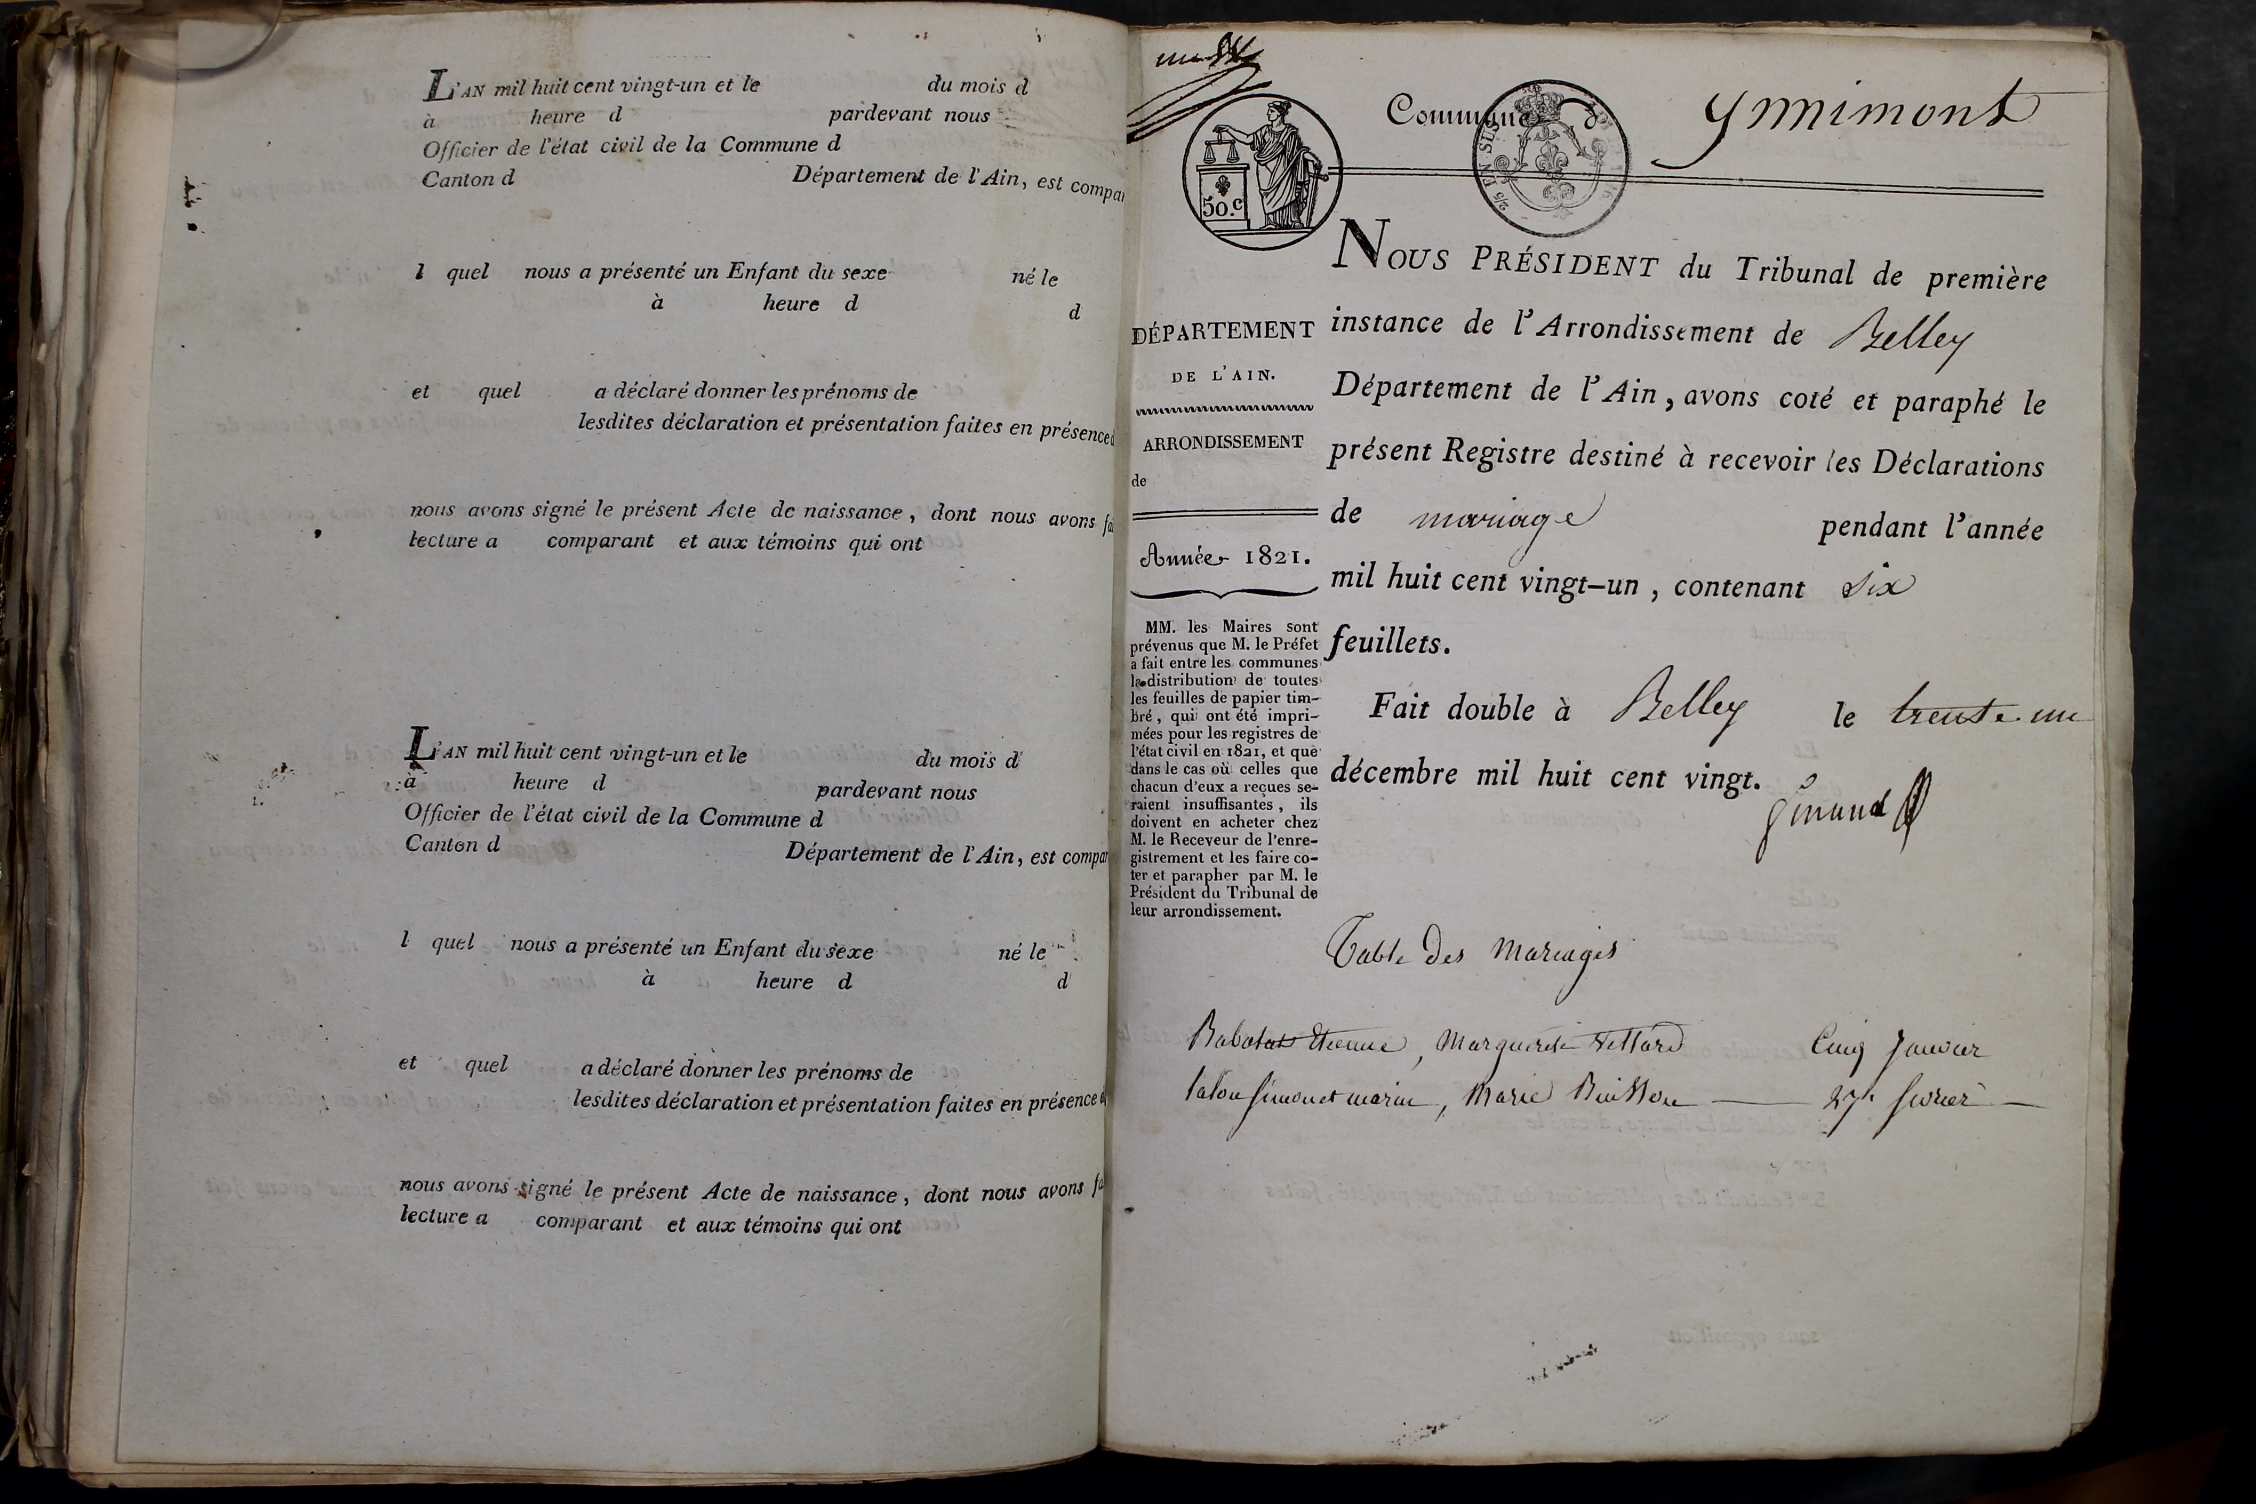 L'AN mil huit cent vingt-un et le du mois d
à heure d pardevant nous
Officier de l'état civil de la Commune d
Canton d Département de l'Ain, est compar
l quel nous a présenté un Enfant du sexe né le
à heure d d
et quel a déclaré donner les prénoms de
lesdites déclaration et présentation faites en présence
nous avons signé le présent Acte de naissance, dont nous avons fa
lecture a comparant et aux témoins qui ont
L'AN mil huit cent vingt-un et le du mois d
à heure d pardevant nous
Officier de l'état civil de la Commune d
Canton d Département de l'Ain, est compar
l quel nous a présenté un Enfant du sexe né le
à heure d d
et quel a déclaré donner les prénoms de
lesdites déclaration et présentation faites en présence d
nous avons signé le présent Acte de naissance, dont nous avons fa
lecture a comparant et aux témoins qui ont
Commune d'Ynnimont
50.c
NOUS PRÉSIDENT du Tribunal de première
instance de l'Arrondissement de Belley
Département de l'Ain, avons coté et paraphé le
présent Registre destiné à recevoir les Déclarations
de mariage pendant l'année
mil huit cent vingt-un, contenant six
feuillets.
Fait double à Belley le trente un
décembre mil huit cent vingt.
DÉPARTEMENT
DE L'AIN.
ARRONDISSEMENT
de
Année 1821.
MM. les Maires sont
prévenus que M. le Préfet
a fait entre les communes
la distribution de toutes
les feuilles de papier tim-
bré, qui ont été impri-
mées pour les registres de
l'état civil en 1821, et que
dans le cas où celles que
chacun d'eux a reçues se-
raient insuffisantes, ils
doivent en acheter chez
M. le Receveur de l'enre-
gistrement et les faire co-
ter et parapher par M. le
Président du Tribunal de
leur arrondissement.
Table Des Mariages
Etienne, Marguerite Cinq Janvier
Marie Buisson 27 fevrier